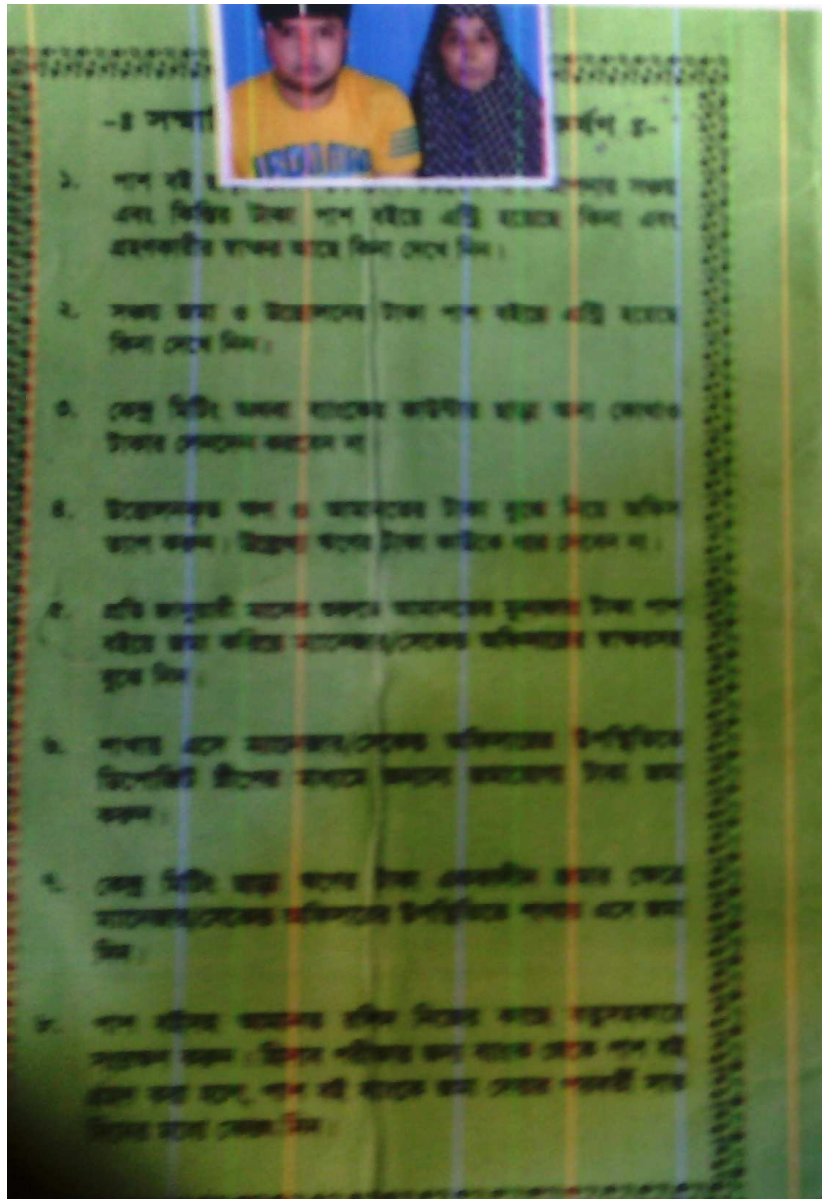 -ঃ সম্মা র্ষণ ঃ-
১. পাশ বই সঞ্চয়
এবং কিস্তির টাকা পাশ বইয়ে এন্ট্রি হয়েছে কিনা এবং
গ্রহণকারীর স্বাক্ষর আছে কিনা দেখে নিন।
২. সঞ্চয় জমা ও উত্তোলনের টাকা পাশ বইয়ে এন্ট্রি হয়েছে
কিনা দেখে নিন।
৩. কেন্দ্র মিটিং অথবা ব্যাংকের কাউন্টার ছাড়া অন্য কোথাও
টাকার লেনদেন করবেন না
৪. উত্তোলনকৃত ঋণ ও আমানতের টাকা বুঝে নিয়ে অফিস
ত্যাগ করুন। উল্লেখ্য ঋণের টাকা কাউকে ধার দেবেন না।
৫. প্রতি জানুয়ারী মাসের শুরুতে আমানতের মুনাফার টাকা পাশ
বইয়ে জমা করিয়ে ম্যানেজার/সেকেন্ড অফিসারের স্বাক্ষরসহ
বুঝে নিন।
৬. শাখায় এসে ম্যানেজার/সেকেন্ড অফিসারের উপস্থিতিতে
ডিপোজিট স্লীপের মাধ্যমে টাকা জমা
করুন।
৭. কেন্দ্র মিটিং ছাড়া ঋণের টাকা এককালীন জমার ক্ষেত্রে
ম্যানেজার/সেকেন্ড অফিসারের উপস্থিতিতে শাখায় এসে জমা
দিন।
৮. পাশ বইসহ আমানত রশিদ নিজের কাছে যত্নসহকারে
সংরক্ষণ করুন। হিসাব পরীক্ষার জন্য ব্যাংক থেকে পাশ বই
গ্রহণ করা হলে, পাশ বই ব্যাংকে জমা দেয়ার পরবর্তী সাত
দিনের মধ্যে ফেরত নিন।